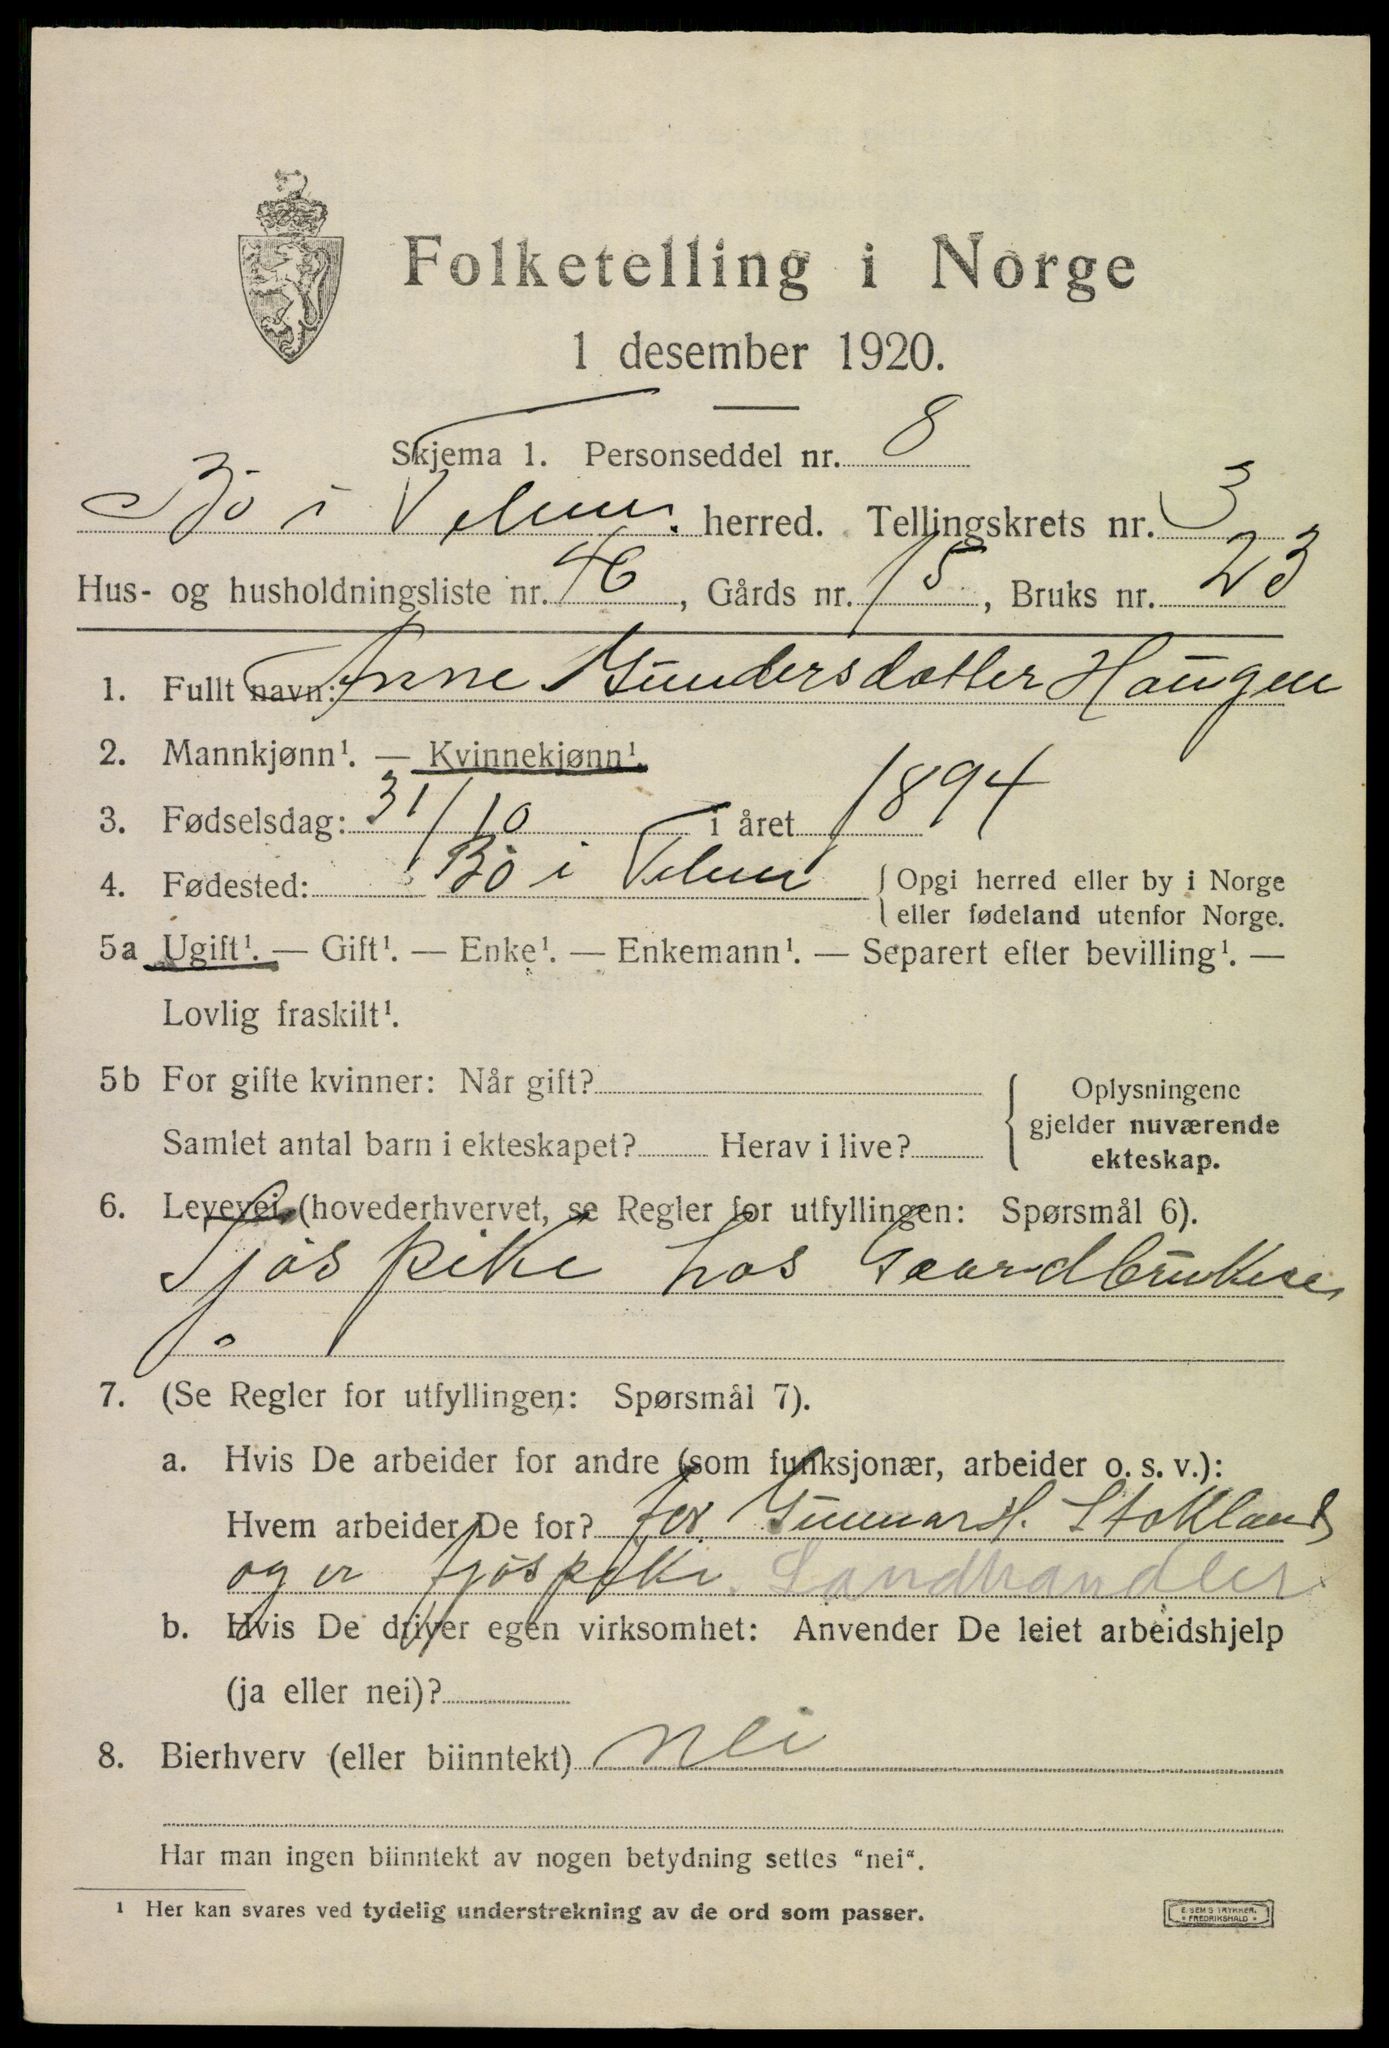 Folketelling i Norge
1 desember 1920.
Skjema 1. Personseddel nr. 8
Bö i Telem. herred. Tellingskrets nr. 3
Hus- og husholdningsliste nr. 46, Gårds nr. 15, Bruks nr. 23
1. Fullt navn: Anne Gundersdatter Haugen
2. Mannkjønn¹. — Kvinnekjønn¹.
3. Fødselsdag: 31/10 i året 1894
4. Fødested: Bö i Telem { Opgi herred eller by i Norge
eller fødeland utenfor Norge.
5a Ugift¹. — Gift¹. — Enke¹. — Enkemann¹. — Separert efter bevilling¹. —
Lovlig fraskilt¹.
5b For gifte kvinner: Når gift?
Samlet antal barn i ekteskapet? Herav i live?
{ Oplysningene
gjelder nuværende
ekteskap.
6. Levevei (hovederhvervet, se Regler for utfyllingen: Spørsmål 6).
Fjøspike hos Gaardbruker
7. (Se Regler for utfyllingen: Spørsmål 7).
a. Hvis De arbeider for andre (som funksjonær, arbeider o. s. v.):
Hvem arbeider De for? for Gunnar H. Stokland
og er fjøspike. Landhandler
b. Hvis De driver egen virksomhet: Anvender De leiet arbeidshjelp
(ja eller nei)?
8. Bierhverv (eller biinntekt) nei
Har man ingen biinntekt av nogen betydning settes "nei".
¹ Her kan svares ved tydelig understrekning av de ord som passer.
E. SEM'S TRYKKERI,
* FREDRIKSHALD *